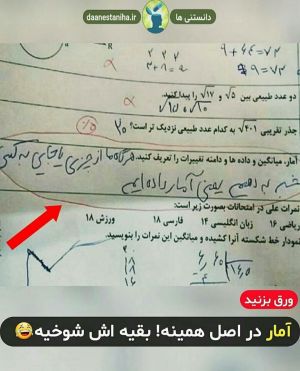 دانستنی ها
daanestaniha.ir
دو عدد طبیعی بین √۵ و √۱۷ را پیدا کنید.
جذر تقریبی √۴۰۱ به کدام عدد طبیعی نزدیک تر است؟
آمار، میانگین و داده ها و دامنه تغییرات را تعریف کنید.
هرگاه از چیزی یا جایی به کسی
خبر بدهیم یعنی آمار داده ایم
نمرات علی در امتحانات بصورت زیر است:
ریاضی ۱۶ زبان انگلیسی ۱۴ فارسی ۱۸ ورزش ۱۸
نمودار خط شکسته آنرا کشیده و میانگین این نمرات را بنویسید.
ورق بزنید
آمار در اصل همینه! بقیه اش شوخیه😂